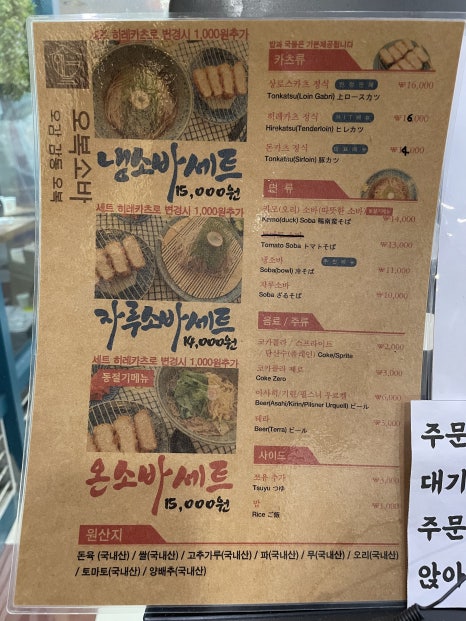 오복소바
오감 감동 오복
세트 히레카츠로 변경시 1,000원추가
냉소바세트
15,000원
세트 히레카츠로 변경시 1,000원추가
자루소바세트
14,000원
세트 히레카츠로 변경시 1,000원추가
동절기메뉴
온소바세트
15,000원
밥과 국물은 기본제공됩니다
카츠류
상로스카츠 정식 ₩16,000
Tonkatsu(Loin Gabri) 上ロースカツ
히레카츠 정식 ₩16,000
Hirekatsu(Tenderloin) ヒレカツ
돈카츠 정식 4,
Tonkatsu(Sirloin) 豚カツ
면 류
카모(오리) 소바(따뜻한 소바) ₩14,000
Kamo(duck) Soba 鴨南蛮そば
Tomato Soba トマトそば ₩13,000
냉소바 ₩11,000
Soba(bowl) 冷そば
자루소바 ₩10,000
Soba ざるそば
음료 / 주류
코카콜라 / 스프라이트 ₩2,000
/ 탄산수(플레인) Coke/Sprite
코카콜라 제로 ₩3,000
Coke Zero
아사히/기린/필스너 우르켈
Beer(Asahi/Kirin/Pilsner Urquell) ビール
테라
Beer(Terra) ビール
사이드
쯔유 추가 ₩3,000
Tsuyu つゆ
밥 ₩1,000
Rice ご飯
원산지
돈육 (국내산) / 쌀(국내산) / 고추가루(국내산) / 파(국내산) / 무(국내산) / 오리(국내산)
/ 토마토(국내산) / 양배추(국내산)
주문
대기
주문
앉아